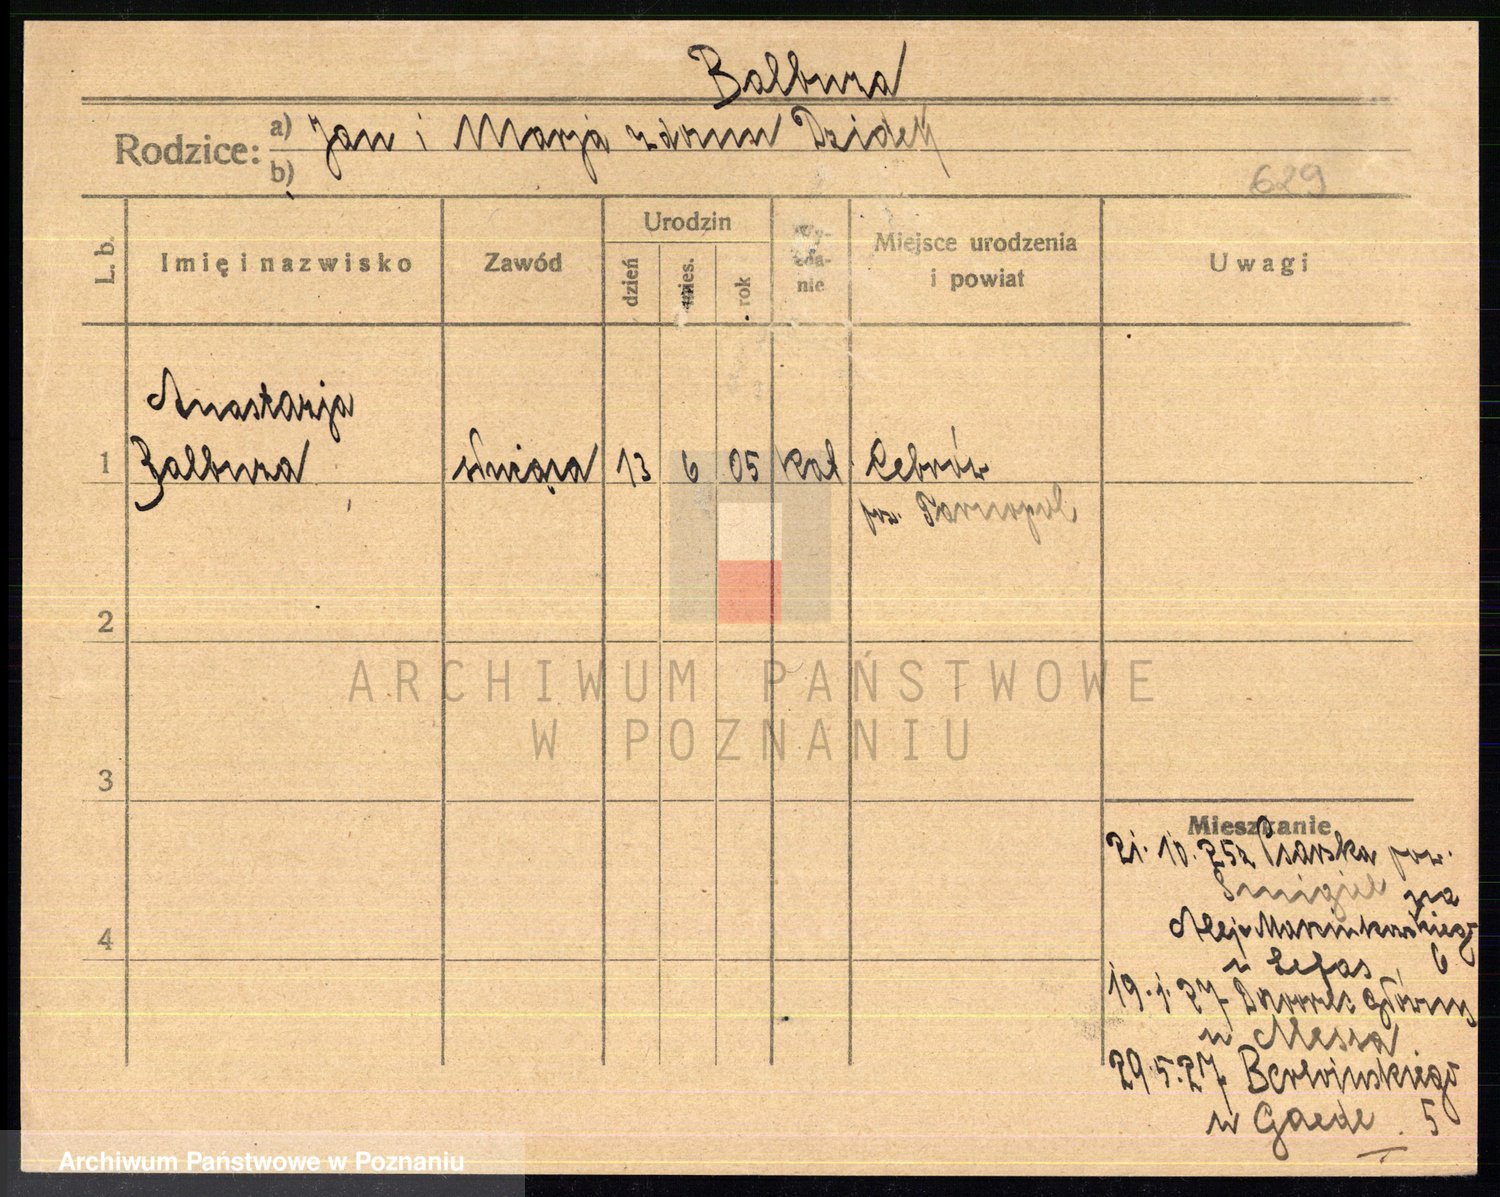 Balbuza
Rodzice: a) Jan i Marja zdomu Dzidek
b)
629
L. b.
Imię i nazwisko
Zawód
Urodzin
dzień
mies.
rok
Wy-
zna-
nie
Miejsce urodzenia
i powiat
Uwagi
Anastazja
1 Balbuza służąca 13 6 05 kat Cebrów
pow. Tarnopol
2
ARCHIWUM PAŃSTWOWE
W POZNANIU
3
Mieszkanie
21.10.25 z Psarska pow.
Śmigiel na
4
Alej. Marcinkowskiego
u 6
19.1.27 Dworzec Główny
u
29.5.27 Berwińskiego
u Gaede 5
Archiwum Państwowe w Poznaniu